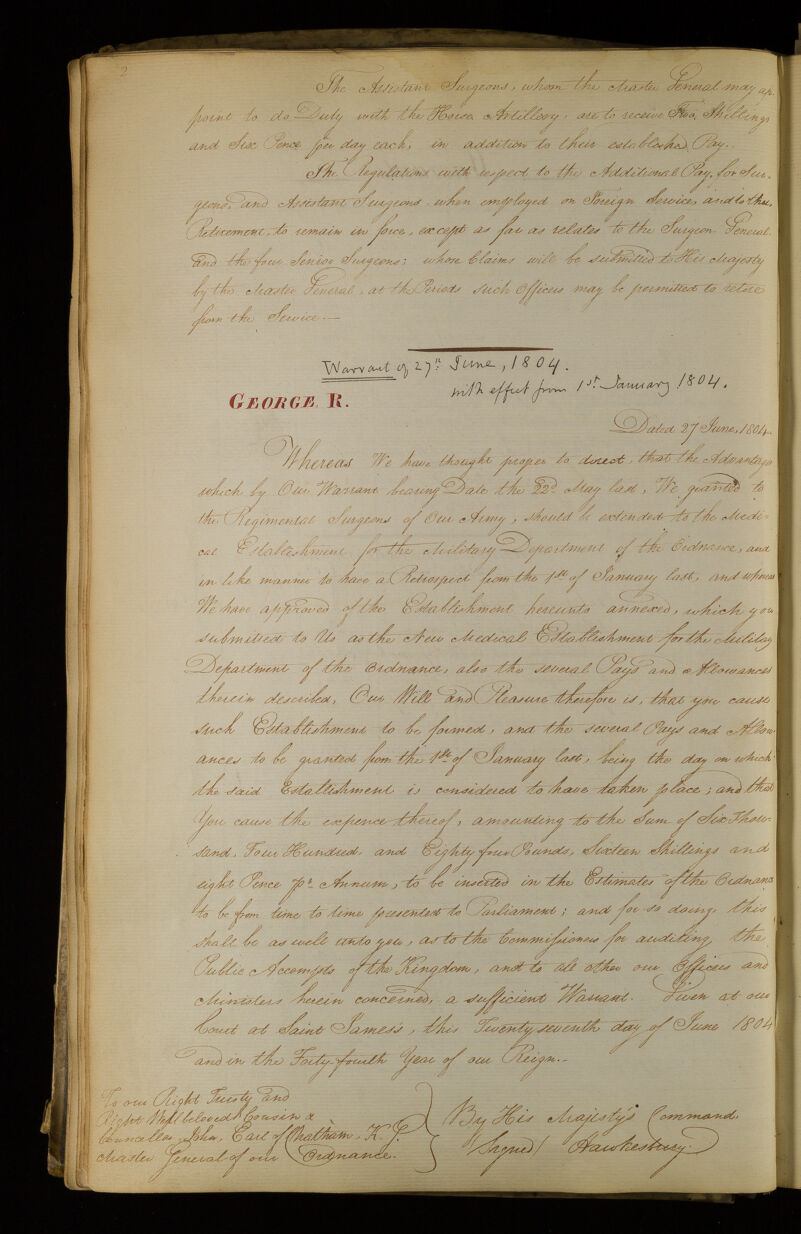 2
The Assistant Surgeons, whom the Master General may ap-
point to do Duty with the Horse Artillery, are to receive Two Shillings
and Six Pence per day each, in addition to their established Pay.
The Regulations with respect to the Additional Pay, for Sur-
geons and Assistant Surgeons when employed on Foreign Service, and to their
Retirement, to remain in force, except as far as relates to the Surgeon General
and the four Senior Surgeons; whose Claims will be submitted to His Majesty
by the Master General, at the Periods such Officers may be permitted to retire
from the Service.—
Warrant of 27th June, 1804.
with effect from 1st January 1804.
GEORGE R.
Dated 27 June, 1804.
Whereas We have thought proper to direct, that the Advantages
which by Our Warrant bearing Date the 22d May last, We granted to
the Regimental Surgeons of Our Army, should be extended to the Medi-
cal Establishment for the Military Department of the Ordnance, and
in like manner to have a Retrospect from the 1st of January last, and whereas
We have approved of the Establishment hereunto annexed, which you
submitted to Us as the New Medical Establishment for the Military
Department of the Ordnance, also the several Pays and Allowances
therein described, Our Will and Pleasure therefore is, that you cause
such Establishment to be formed, and the several Pays and Allow-
ances to be granted from the 1st of January last, being the day on which
the said Establishment is considered to have taken place; and that
You cause the expence thereof, amounting to the Sum of Six Thou-
sand, Four Hundred, and Eighty four Pounds, Sixteen Shillings and
eight Pence pr Annum, to be inserted in the Estimates of the Ordnance
to be from time to time presented to Parliament; and for so doing this
shall be as well unto you, as to the Commissioners for auditing the
Public Accompts of the Kingdom, and to all other our Officers and
Ministers herein concerned, a sufficient Warrant. Given at our
Court at Saint James's, this Twenty seventh day of June 1804
and in the Forty fourth Year of our Reign.—
To our Right Trusty and
Right Wellbeloved Cousin &
Councellor John, Earl of Chatham, K.G.
Master General of our Ordnance.
By His Majesty's Command.
Signed/ Hawkesbury.